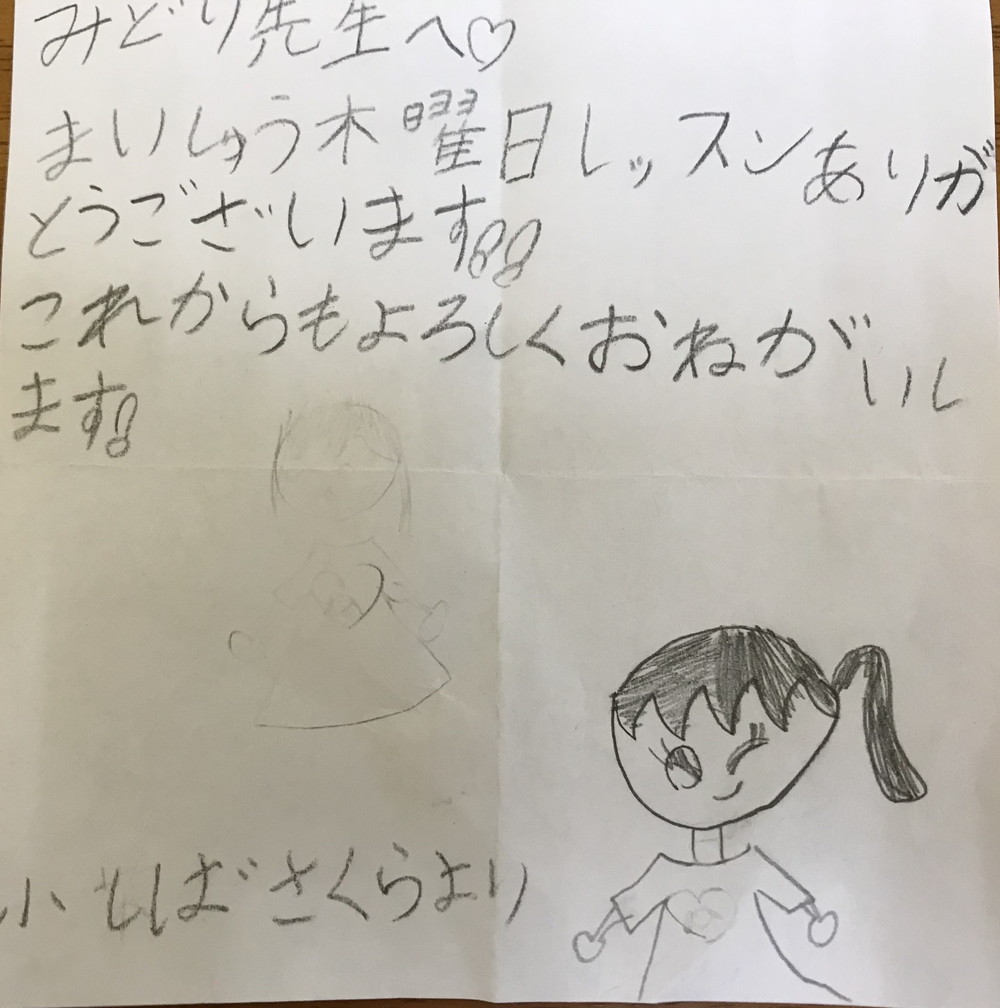 みどり先生へ♡
まいしゅう木曜日レッスンありが
とうございます!!
これからもよろしくおねがいし
ます!
さくらより